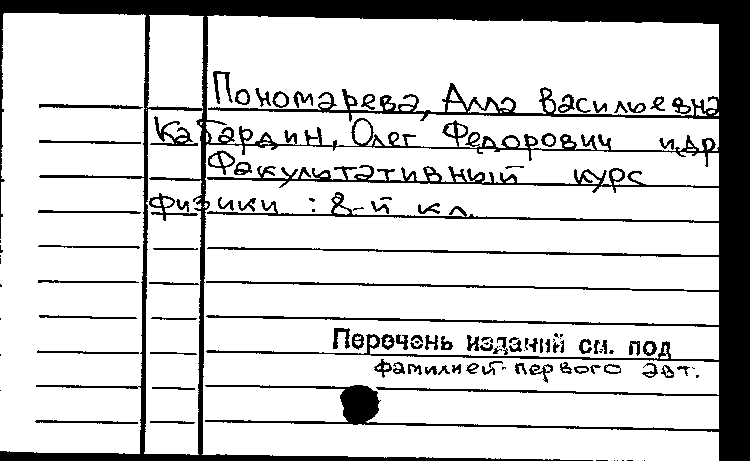 Пономарева, Алла Васильевна
Кабардин, Олег Федорович и др.
Факультативный курс
физики : 8-й кл.
Перечень изданий см. под
фамилией первого авт.